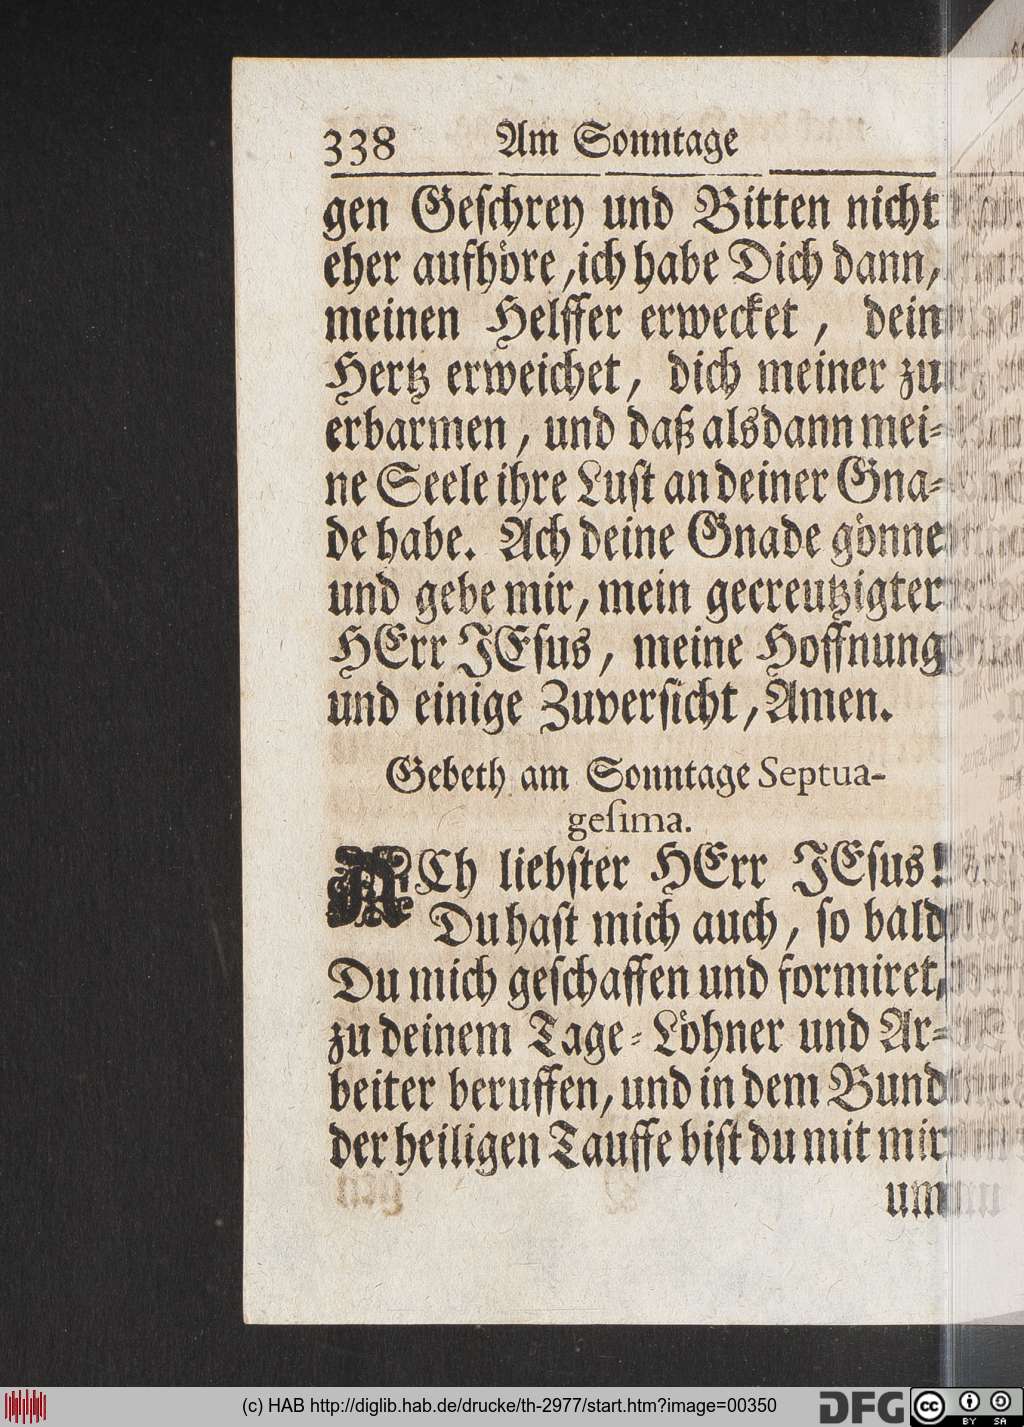 338 Am Sonntage
gen Geſchrey und Bitten nicht
eher aufhöre, ich habe Dich dann,
meinen Helffer erwecket, dein
Hertz erweichet, dich meiner zu
erbarmen, und daß alsdann mei-
ne Seele ihre Luſt an deiner Gna-
de habe. Ach deine Gnade gönne
und gebe mir, mein gecreutzigter
HErr JEſus, meine Hoffnung
und einige Zuverſicht, Amen.
Gebeth am Sonntage Septua-
geſima.
ACh liebſter HErr JEſus!
Du haſt mich auch, ſo bald
Du mich geſchaffen und formiret,
zu deinem Tage-Löhner und Ar-
beiter beruffen, und in dem Bund
der heiligen Tauffe biſt du mit mir
um
(c) HAB http://diglib.hab.de/drucke/th-2977/start.htm?image=00350
DFG
cc BY SA